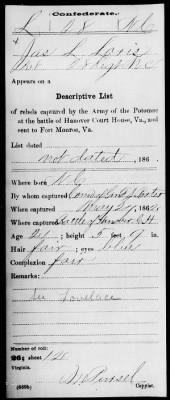 Confederate.
L 28 N.C.
Jas. L.
28 Regt. N.C.
Appears on a
Descriptive List
of rebels captured by the Army of the Potomac
at the battle of Hanover Court House, Va., and
sent to Fort Monroe, Va.
List dated
not dated, 186 .
Where born N.C.
By whom captured
When captured May 27, 1862.
Where captured Battle of Hanover C.H.
Age 24; height 5 feet 9 in.
Hair fair; eyes blue
Complexion fair
Remarks:
See Lovelace
Number of roll:
26; sheet 12
Virginia.
(639b) Copyist.